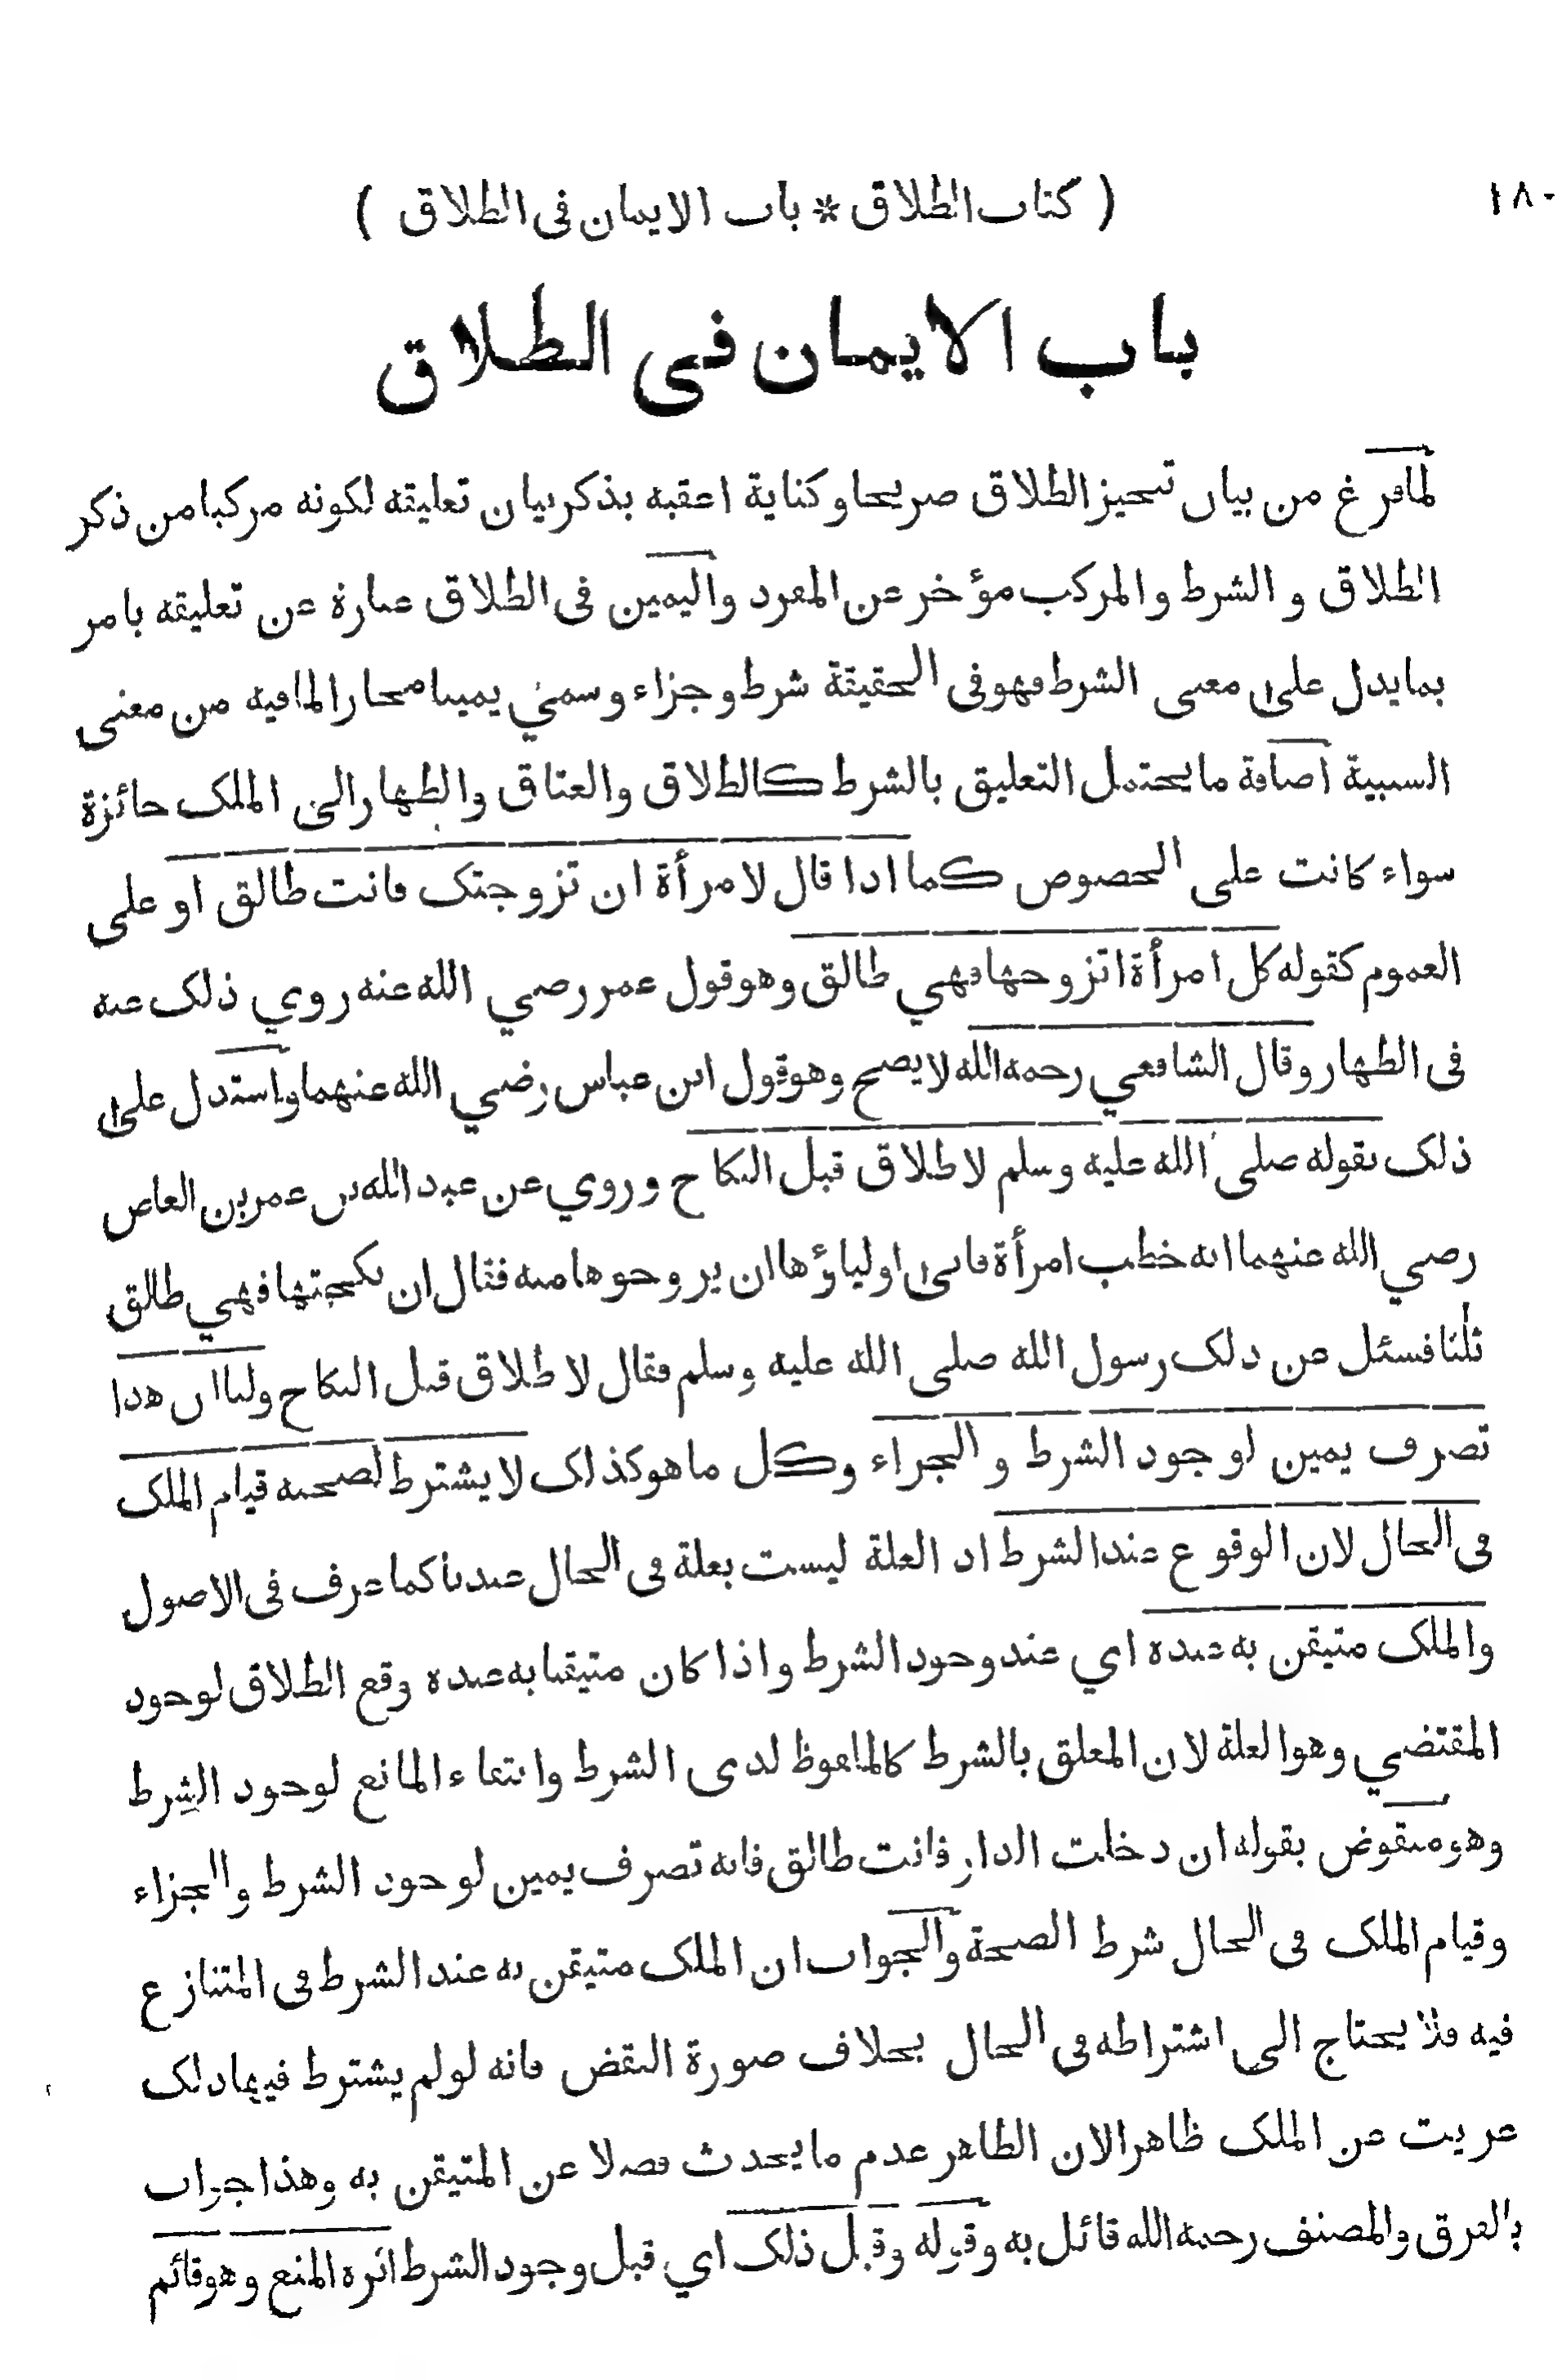 ١٨٠
( كتاب الطلاق * باب الايمان فى الطلاق )
باب الايمان فى الطلاق
لما فرغ من بيان تنجيز الطلاق صريحا وكناية اعقبه بذكر بيان تعليقه لكونه مركبا من ذكر
الطلاق و الشرط و المركب مؤخر عن المفرد واليمين فى الطلاق عبارة عن تعليقه بامر
بما يدل على معنى الشرط فهو فى الحقيقة شرط و جزاء و سمى يمينا مجازا لما فيه من معنى
السببية اضافة ما يحتمل التعليق بالشرط كالطلاق والعتاق والظهار الى الملك جائزة
سواء كانت على الخصوص كما اذا قال لامرأة ان تزوجتك فانت طالق او على
العموم كقوله كل امرأة اتزوجها فهي طالق وهو قول عمر رضي الله عنه روي ذلك عنه
فى الظهار وقال الشافعي رحمه الله لا يصح وهو قول ابن عباس رضي الله عنهما واستدل على
ذلك بقوله صلى الله عليه وسلم لا طلاق قبل النكاح و روي عن عبد الله بن عمر بن العاص
رضي الله عنهما انه خطب امرأة فابى اولياؤها ان يزوجوها منه فقال ان نكحتها فهي طالق
ثلثا فسئل عن ذلك رسول الله صلى الله عليه وسلم فقال لا طلاق قبل النكاح ولنا ان هذا
تصرف يمين لوجود الشرط و الجزاء وكل ما هو كذلك لا يشترط لصحته قيام الملك
فى الحال لان الوقوع عند الشرط اذ العلة ليست بعلة فى الحال عندنا كما عرف فى الاصول
والملك متيقن به عنده اي عند وجود الشرط و اذا كان متيقنا به عنده وقع الطلاق لوجود
المقتضي وهو العلة لان المعلق بالشرط كالملفوظ لدى الشرط وانتفاء المانع لوجود الشرط
وهو منقوض بقوله ان دخلت الدار فانت طالق فانه تصرف يمين لوجود الشرط والجزاء
وقيام الملك فى الحال شرط الصحة والجواب ان الملك متيقن به عند الشرط فى المتنازع
فيه فلا يحتاج الى اشتراطه فى الحال بخلاف صورة النقض فانه لو لم يشترط فيها ذلك
عريت عن الملك ظاهرا لان الظاهر عدم ما يحدث فضلا عن المتيقن به وهذا جواب
بالفرق والمصنف رحمه الله قائل به وقوله وقبل ذلك اي قبل وجود الشرط اثره المنع وهو قائم